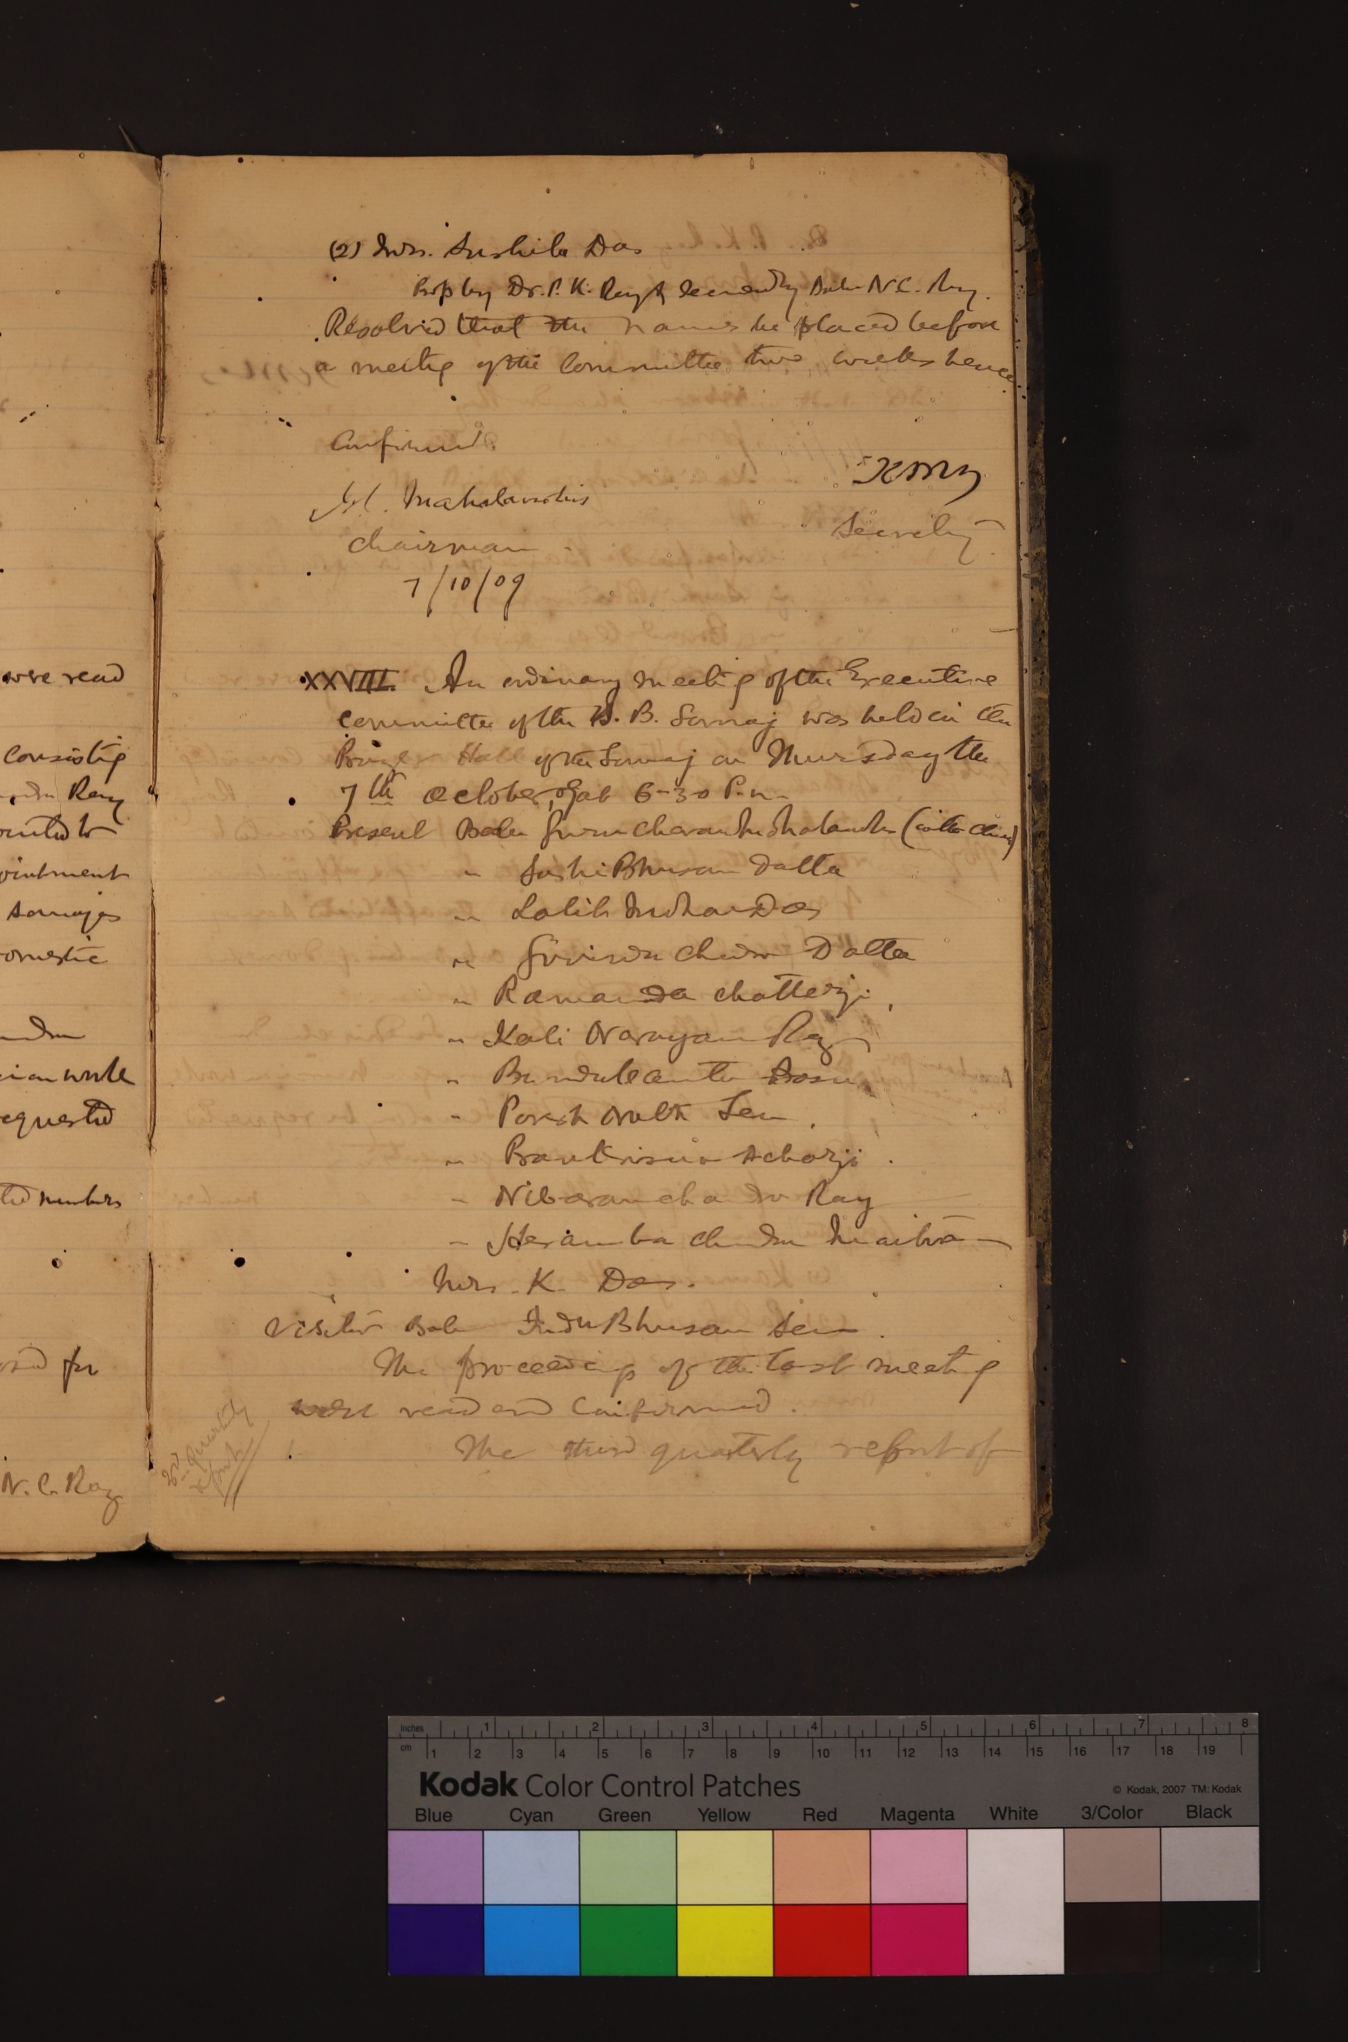 were read
consisting
Ray
ointment
Samajes
omestic
requested
ted members
for
N. C. Ray
(2) Mrs. Sushila Das
Prop by Dr. P. K. Ray & Seconded by Babu N. C. Ray.
Resolved that the names be placed before
a meeting of the Committee two weeks hence
Confirmed.
Mahalanobis
Chairman
7/10/09
Secretary
XXVIII. An ordinary meeting of the Executive
Committee of the S. B. Samaj was held in the
Prayer Hall of the Samaj on Thursday the
7th October, 09 at 6-30 P.m.
Present Babu Guru Charan Mahalanobis (in the Chair)
" Sashi Bhusan Datta
" Lalit Mohan Das
" Govinda Chandra Datta
" Ramananda Chatterji
" Kali Narayan Ray
" Barada Kanta Bosu
" Poresh Nath Sen
" Prankrisna Acharji
" Nibaran Chandra Ray
" Heramba Chandra Maitra
Mrs. K. Das.
Visitor Babu Indu Bhusan Sen.
The proceedings of the last meeting
were read and confirmed.
3rd quarterly
report
The third quarterly report of
inches 1 2 3 4 5 6 7 8
cm 1 2 3 4 5 6 7 8 9 10 11 12 13 14 15 16 17 18 19
Kodak Color Control Patches
© Kodak, 2007 TM: Kodak
Blue Cyan Green Yellow Red Magenta White 3/Color Black